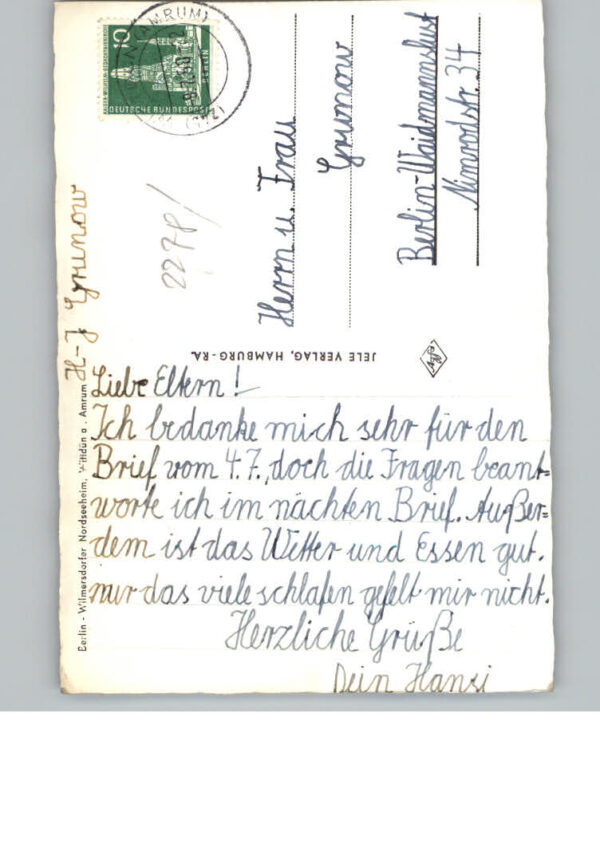 10
DEUTSCHE BUNDESPOST
BERLIN
(AMRUM)
2278/
Herrn u. Frau
Grunow
Berlin-Waidmannslust
Nimrodstr. 34
JELE VERLAG, HAMBURG-RA.
Agfa
H-J Grunow
Berlin - Wilmersdorfer Nordseeheim, Wittdün a. Amrum
Liebe Eltern!
Ich bedanke mich sehr für den
Brief vom 4.7., doch die Fragen beant=
worte ich im nächten Brief. Außer=
dem ist das Wetter und Essen gut.
nur das viele schlafen gefelt mir nicht.
Herzliche Grüße
Dein Hansi